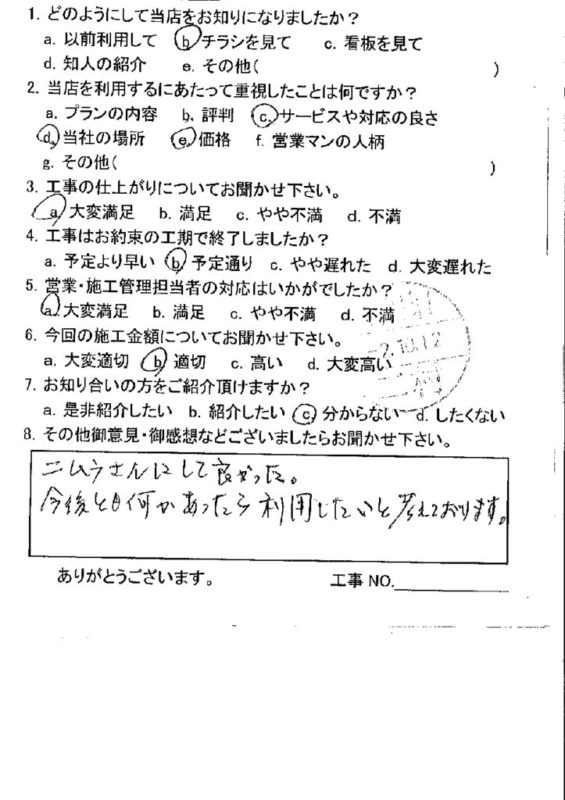 1. どのようにして当店をお知りになりましたか？
a. 以前利用して b. チラシを見て c. 看板を見て
d. 知人の紹介 e. その他( )
2. 当店を利用するにあたって重視したことは何ですか？
a. プランの内容 b. 評判 c. サービスや対応の良さ
d. 当社の場所 e. 価格 f. 営業マンの人柄
g. その他( )
3. 工事の仕上がりについてお聞かせ下さい。
a. 大変満足 b. 満足 c. やや不満 d. 不満
4. 工事はお約束の工期で終了しましたか？
a. 予定より早い b. 予定通り c. やや遅れた d. 大変遅れた
5. 営業・施工管理担当者の対応はいかがでしたか？
a. 大変満足 b. 満足 c. やや不満 d. 不満
6. 今回の施工金額についてお聞かせ下さい。
a. 大変適切 b. 適切 c. 高い d. 大変高い
2.10.12
7. お知り合いの方をご紹介頂けますか？
a. 是非紹介したい b. 紹介したい c. 分からない d. したくない
8. その他御意見・御感想などございましたらお聞かせ下さい。
ニムラさんにして良かった。
今後とも何かあったら利用したいと考えております。
ありがとうございます。 工事 NO.